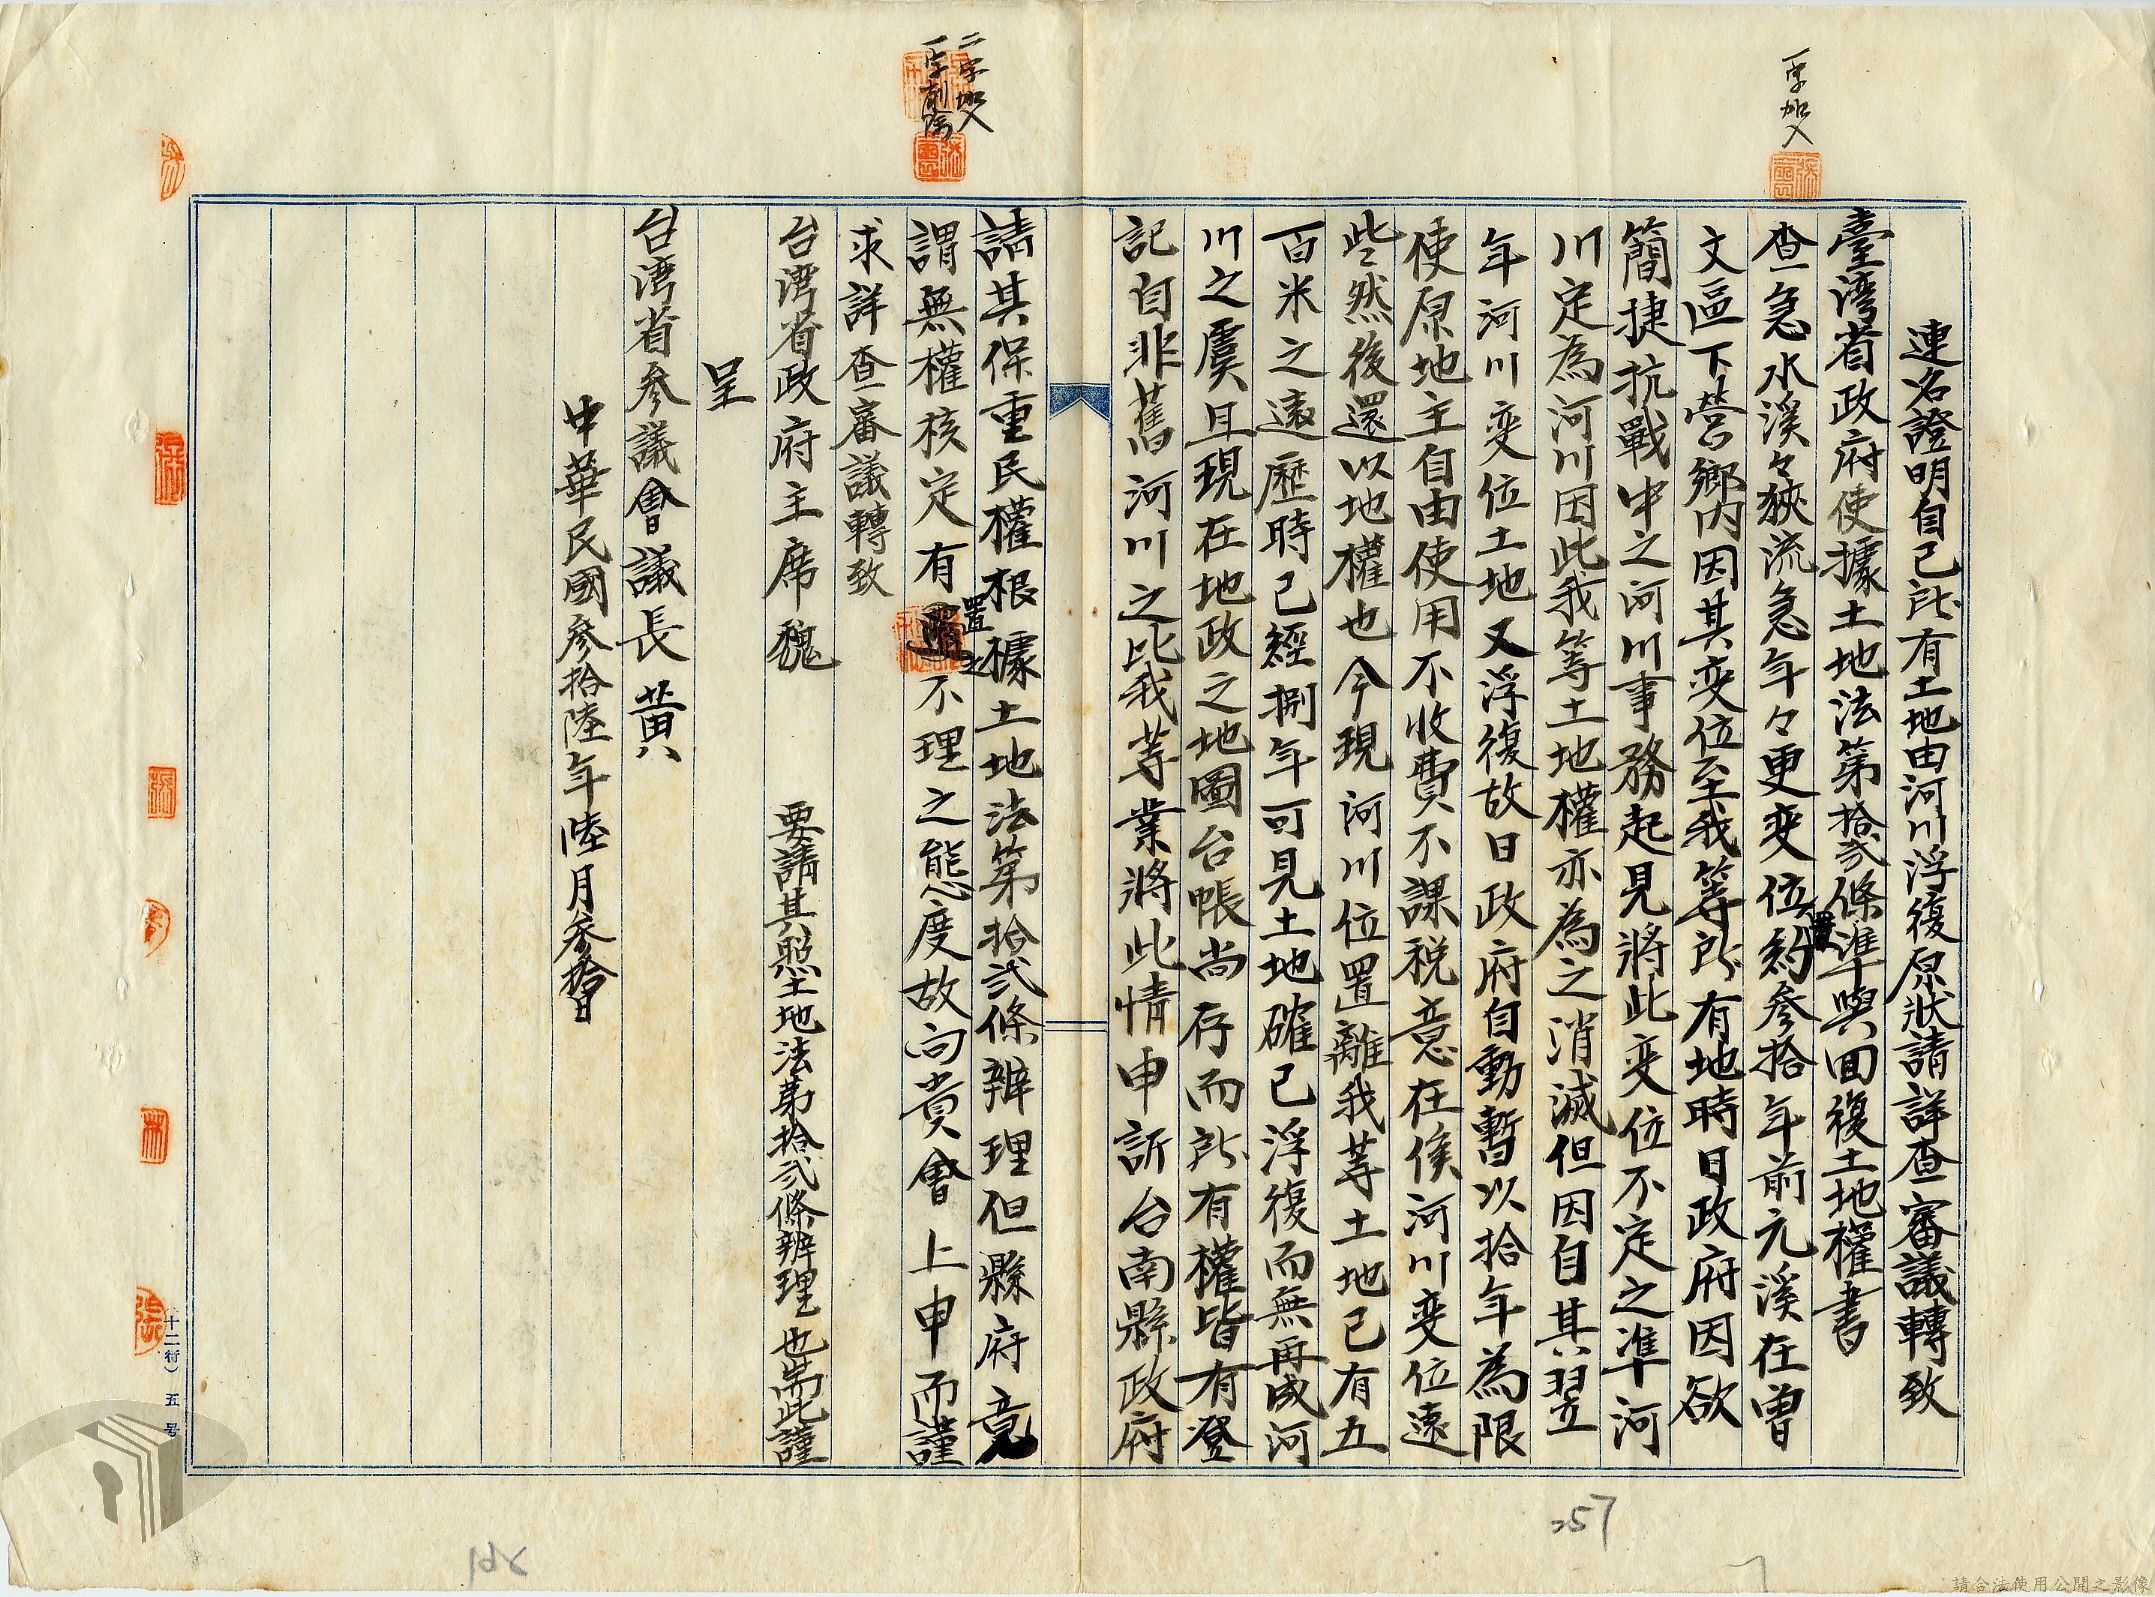 一字加入
二字加入
一字削除
連名證明自己所有土地由河川浮復原狀請詳查審議轉致
臺湾省政府使據土地法第拾弍條準與回復土地權書
查急水溪々狹流急年々更变位置約參拾年前元溪在曾
文區下營鄉內因其变位至我等所有地時日政府因欲
簡捷抗戰中之河川事務起見將此变位不定之準河
川定為河川因此我等土地權亦為之消滅但因自其翌
年河川变位土地又浮復故日政府自動暫以拾年為限
使原地主自由使用不收費不課税意在俟河川变位遠
些然後還以地權也今現河川位置離我等土地已有五
百米之遠歷時已經捌年可見土地確已浮復而無再成河
川之虞且現在地政之地圖台帳尚存而所有權皆有登
記自非舊河川之比我等業將此情申訴台南縣政府
請其保重民權根據土地法第拾弍條辨理但縣府竟
謂無權核定有置之不理之態度故向貴會上申而謹
求詳查審議轉致
台湾省政府主席魏　要請其照土地法第拾弍條辨理也耑此謹
呈
台湾省參議會議長黄
中華民國參拾陸年陸月參拾日
十二行）五号
257
請合法使用公開之影像